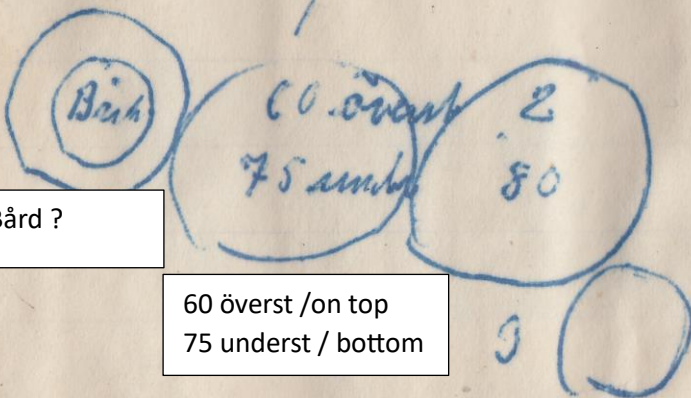 60 överst 2
75 underst 80
Bård ?
60 överst /on top
75 underst / bottom
9